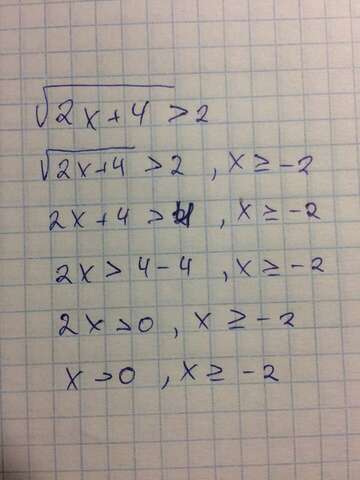 √2x+4 > 2
√2x+4 > 2 , x ≥ -2
2x+4 > 4 , x ≥ -2
2x > 4-4 , x ≥ -2
2x > 0 , x ≥ -2
x > 0 , x ≥ -2